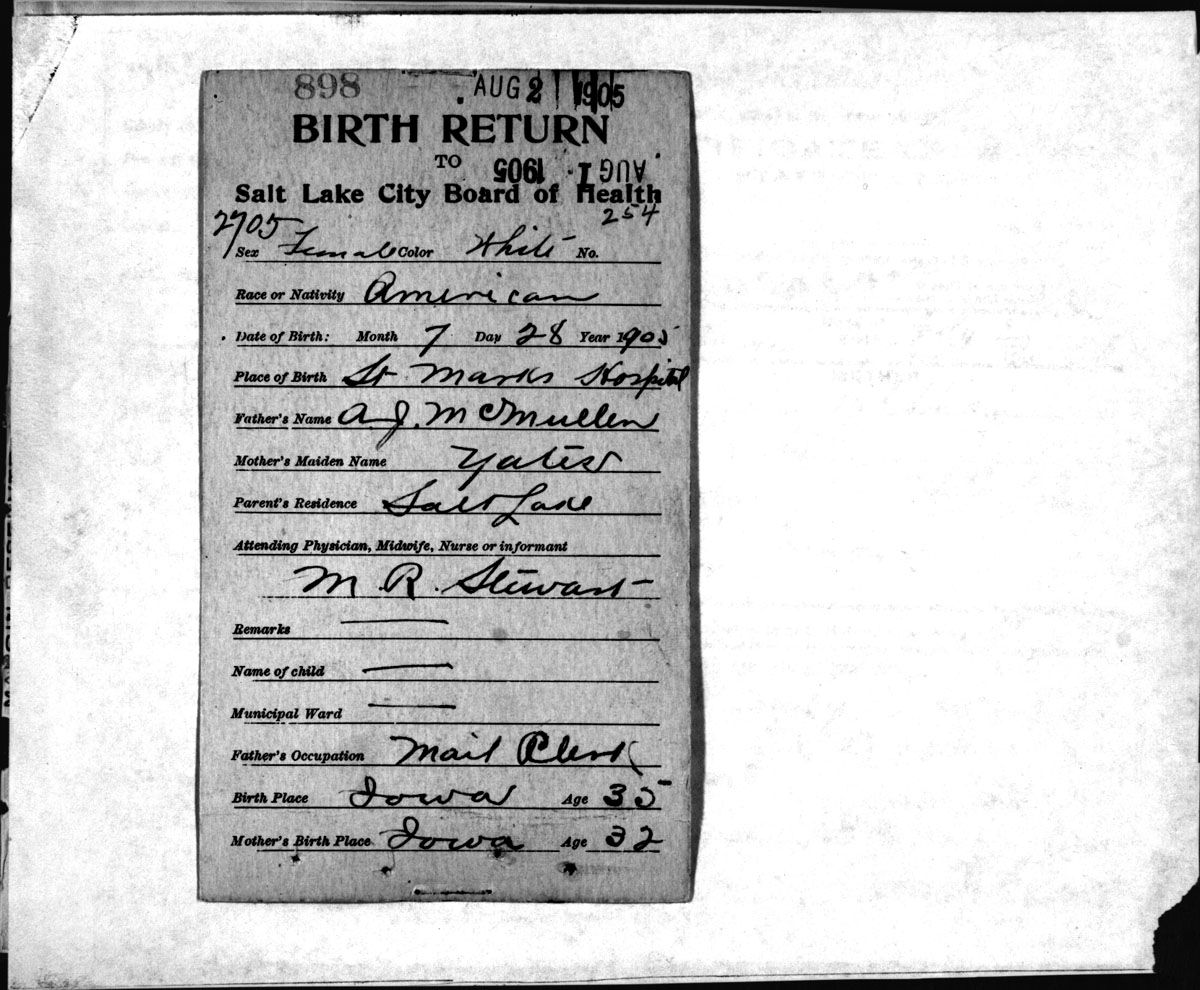 898 AUG 2 1905
BIRTH RETURN
TO AUG 1 1905
Salt Lake City Board of Health
2705 254
Sex Female Color White No.
Race or Nativity American
Date of Birth: Month 7 Day 28 Year 1905
Place of Birth St Marks Hospital
Father's Name A J. McMullen
Mother's Maiden Name Yates
Parent's Residence Salt Lake
Attending Physician, Midwife, Nurse or informant
M. R. Stewart
Remarks —
Name of child —
Municipal Ward —
Father's Occupation Mail Clerk
Birth Place Iowa Age 35
Mother's Birth Place Iowa Age 32